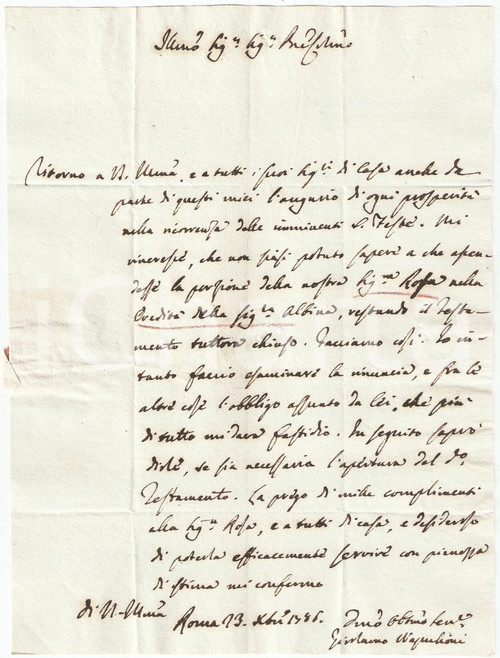 Illmo Sigr Sigr Pne Colmo
Ritorno a V. Illma, e a tutti i suoi Sigri di Casa anche da
parte di questi miei l'augurio di ogni prosperità
nella ricorrenza delle imminenti S. Feste. Mi
rincresce, che non siasi potuto sapere a che ascen-
desse la porzione della nostra Sigra Rosa nella
Eredità della Sigra Albina, restando il Testa-
mento tuttora chiuso. Facciamo così. Io in-
tanto faccio esaminare la rinuncia, e fra le
altre cose l'obbligo assunto da lei, che più
di tutto mi dava fastidio. In seguito saprò
dirle, se sia necessaria l'apertura del do
Testamento. La prego di mille complimenti
alla Sigra Rosa, e a tutti di casa, e desideroso
di poterla efficacemente servire con pienezza
di stima mi confermo
di V. Illma
Roma 23. Xbre 1786.
Dmo Obbmo Serre
Girolamo Napulioni